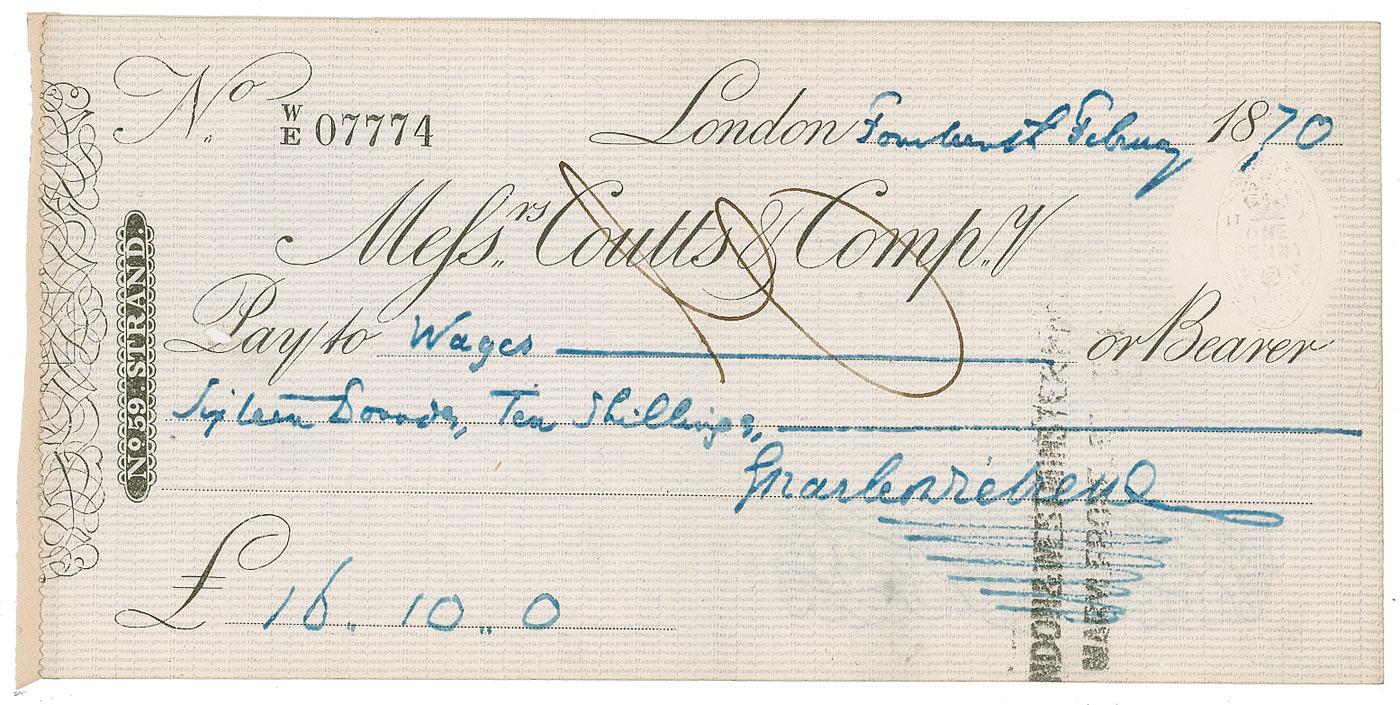 No. W/E 07774
London Fourteenth February 1870
Messrs Coutts & Compy
No 59. STRAND.
Pay to Wages or Bearer
Sixteen Pounds, Ten Shillings,
Charles Dickens
£ 16.. 10.. 0
ONE
PENNY